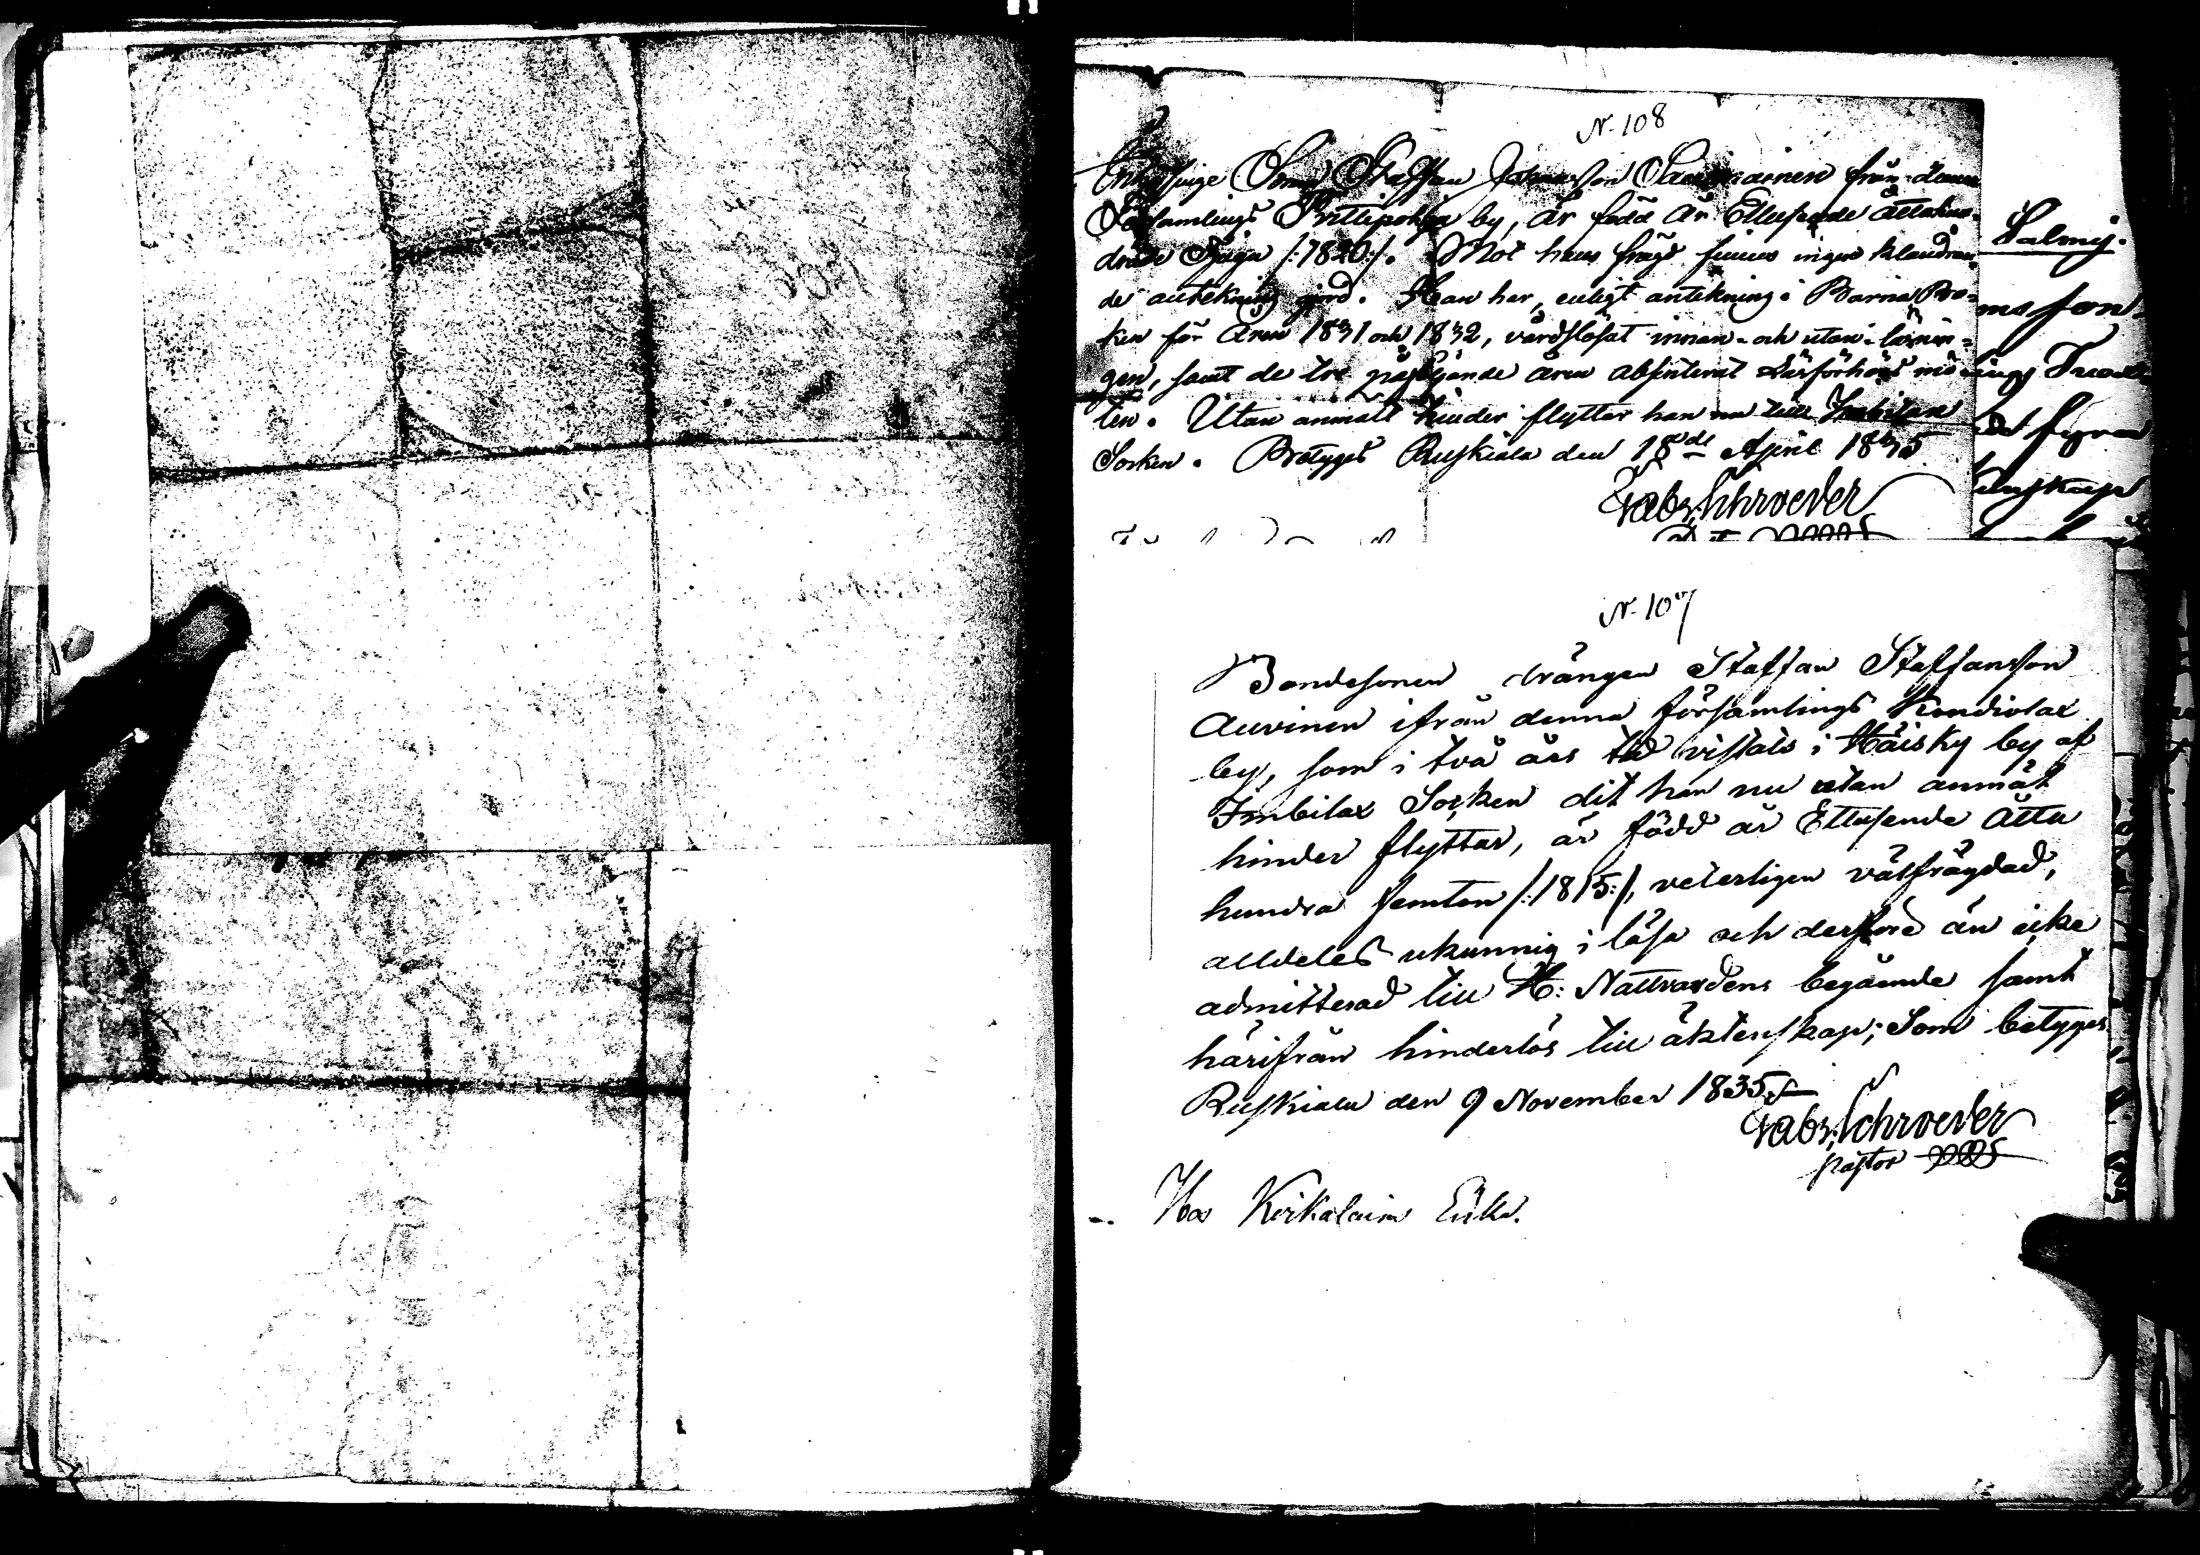 N. 108
Sonen Staffan från denna
Församlings by, är född År Ettusende åttahun-
drade Tjugu /:1820:/. Mot hans frägd finnes ingen klandran-
de antekning gjord. Han har, enligt antekning i Barna Bo-
ken för Åren 1831 och 1832, vårdslösat innan- och utan-läsnin-
gen, samt de tre påföljande åren absenterat Läsförhörs mö-
ten. Utan anmält hinder flyttar han nu till Imbilax
Socken. Betyges Ruskiala den 18de April 1835
Gabr. Schroeder
Salmis.
N. 107
Bondesonen drängen Staffan Staffansson
Auvinen ifrån denna församlings Kondiolax
by, som i två års tid vistats i Häisky by af
Imbilax Socken dit han nu utan anmält
hinder flyttar, är född år Ettusende Åtta
hundra femton /:1815:/, veterligen välfrägdad,
alldeles okunnig i läsa och derföre än icke
admitterad till H: Nattvardens begående samt
härifrån hinderlös till äktenskap; Som betyges
Ruskiala den 9 November 1835.
Gabr. Schroeder
Pastor
Hos Kirkolaine Erika.